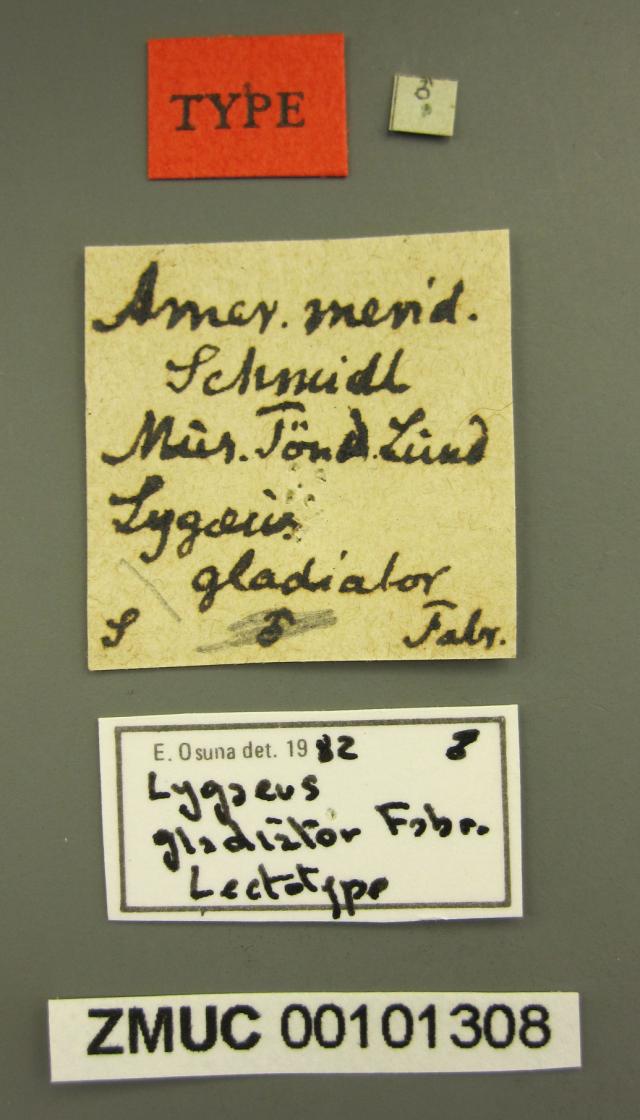 TYPE
♂
Amer. merid.
Schmidt
Mus. Tönd. Lund
Lygæus
gladiator
S ♂ Fabr.
E. Osuna det. 1982 ♂
Lygaeus
gladiator Fabr.
Lectotype
ZMUC 00101308